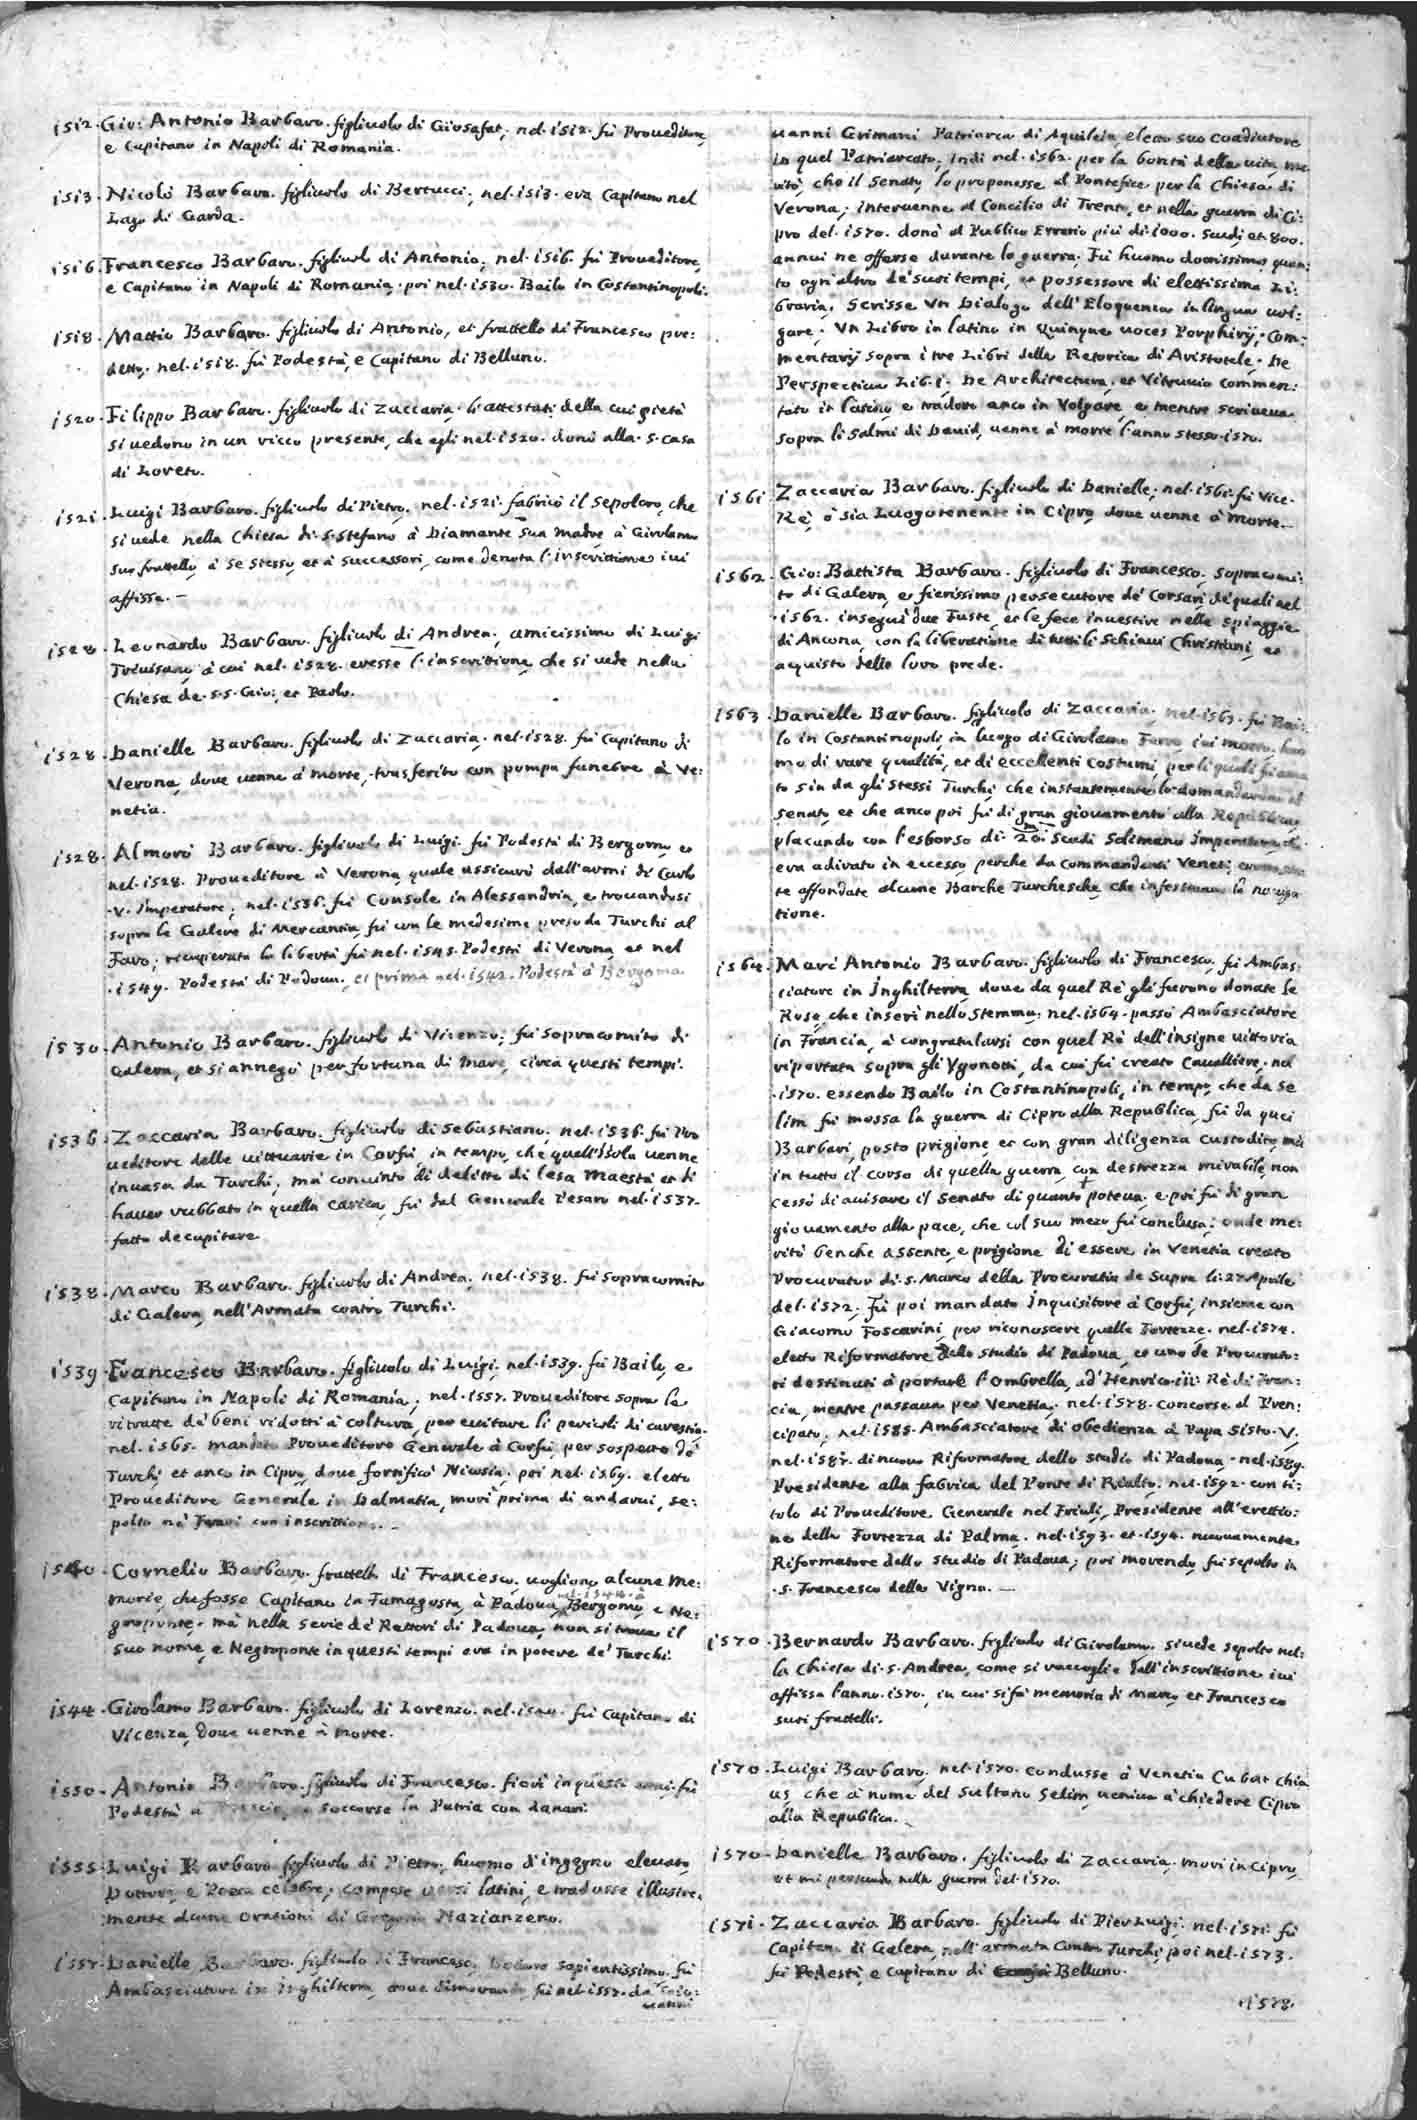 1512. Gio: Antonio Barbaro. figliuolo di Giosafat, nel. 1512. fù Proueditore,
e Capitano in Napoli di Romania.
1513. Nicolò Barbaro. figliuolo di Bertucci, nel. 1513. era Capitano nel
Lago di Garda.
1516. Francesco Barbaro. figliuolo di Antonio, nel. 1516. fù Proueditore,
e Capitano in Napoli di Romania, poi nel. 1530. Bailo in Costantinopoli.
1518. Mattio Barbaro. figliuolo di Antonio, et frattello di Francesco pre:
detto, nel. 1518. fù Podestà, e Capitano di Belluno.
1520. Filippo Barbaro. figliuolo di Zaccaria. gl'attestati della cui pietà
si uedono in un ricco presente, che egli nel. 1520. donò alla. S. Casa
di Loreto.
1521. Luigi Barbaro. figliuolo di Pietro, nel. 1521. fabricò il sepolcro, che
si uede nella Chiesa di. S. Stefano à Diamante sua madre à Girolamo
suo frattello, à se stesso, et à successori, come denota l'inscrittione iui
affissa. -
1528. Leonardo Barbaro. figliuolo di Andrea, amicissimo di Luigi
Triuisano, à cui nel. 1528. eresse l'inscrittione, che si uede nella
Chiesa de. S.S. Gio: et Paolo.
1528. Danielle Barbaro. figliuolo di Zaccaria. nel. 1528. fù Capitano di
Verona, doue uenne à morte, trasferito con pompa funebre à Ve:
netia.
1528. Almorò Barbaro. figliuolo di Luigi. fù Podestà di Bergomo, et
nel. 1528. Proueditore à Verona, quale assicurò dall'armi di Carlo
.V. Imperatore, nel. 1536. fù Console in Alessandria, e trouandosi
sopra le Galere di Mercantia, fù con le medesime preso da Turchi al
Faro; ricuperata la libertà fù nel. 1545. Podestà di Verona, et nel
.1549. Podestà di Padoua, et prima nel. 1542. Podestà à Bergomo.
1530. Antonio Barbaro. figliuolo di Vicenzo, fù sopracomito di
Galera, et si annegò per fortuna di Mare, circa questi tempi.
1536. Zaccaria Barbaro. figliuolo di Sebastiano, nel. 1536. fù Pro
ueditore delle uittuarie in Corfù in tempo, che quell'Isola uenne
inuasa da Turchi, mà conuinto di delitto di lesa Maestà, et di
hauer rubbato in quella carica, fù dal Generale Pesaro nel. 1537.
fatto decapitare.
1538. Marco Barbaro. figliuolo di Andrea, nel. 1538. fù sopracomito
di Galera, nell'Armata contro Turchi.
1539. Francesco Barbaro. figliuolo di Luigi, nel. 1539. fù Bailo, e
Capitano in Napoli di Romania, nel. 1557. Proueditore sopra le
ritratte de' beni ridotti à coltura, per euitare li pericoli di carestia.
nel. 1565. mandato Proueditore Generale à Corfù, per sospetto de'
Turchi, et anco in Cipro, doue fortificò Nicosia. poi nel. 1569. eletto
Proueditore Generale in Dalmatia, morì prima di andarui, se:
polto ne' Frari con inscrittione. -
1540. Cornelio Barbaro. frattello di Francesco, uogliono alcune me:
morie, che fosse Capitano in Famagosta, à Padoua, nel. 1544. à Bergomo, e Ne:
groponte, mà nella serie de' Rettori di Padoua, non si troua il
suo nome, e Negroponte in questi tempi era in potere de' Turchi.
1544. Girolamo Barbaro. figliuolo di Lorenzo. nel. 1544. fù Capitano di
Vicenza, doue uenne à morte.
1550. Antonio Barbaro. figliuolo di Francesco. fiorì in questi anni, fù
Podestà à e soccorse la Patria con danari.
1555. Luigi Barbaro figliuolo di Pietro, huomo d'ingegno eleuato,
Dottore, e Poeta celebre, compose uersi latini, e tradusse illustre:
mente alcune Orationi di Gregorio Nazianzeno.
1557. Danielle Barbaro. figliuolo di Francesco, Dottore sapientissimo. fù
Ambasciatore in Inghilterra, doue dimorando, fù nel. 1557. da Gio:
uanni
uanni Grimani Patriarca di Aquileia, eletto suo Coadiutore
in quel Patriarcato, Indi nel. 1562. per la bontà della uita, me
ritò che il Senato, lo proponesse al Pontefice per la Chiesa di
Verona, interuenne al Concilio di Trento, et nella guerra di Ci:
pro del. 1570. donò al Publico Errario più di. 1000. scudi, et. 800.
annui ne offerse durante la guerra. Fù huomo dottissimo quan:
to ogn'altro de' suoi tempi, et possessore di elettissima Li:
braria. Scrisse Un Dialogo dell'Eloquenza in lingua uol:
gare. Un Libro in latino in Quinque uoces Porphirij. Com:
mentarij sopra i tre Libri della Retorica di Aristotele. De
Perspectiua Lib. i. De Architectura, et Vitruuio commen:
tato in latino, e tradotto anco in Volgare, e mentre scriueua
sopra li Salmi di Dauid, uenne à morte l'anno stesso. 1570.
1561. Zaccaria Barbaro. figliuolo di Danielle, nel. 1561. fù Vice.
Rè, ò sia Luogotenente in Cipro, doue uenne à morte.
1562. Gio: Battista Barbaro. figliuolo di Francesco, sopracomi:
to di Galera, e fierissimo persecutore de' Corsari, de' quali nel
.1562. inseguì due Fuste, et le fece inuestire nelle spiaggie
di Ancona, con la liberatione di tutti li Schiaui Christiani, et
acquisto delle loro prede.
1563. Danielle Barbaro. figliuolo di Zaccaria, nel. 1563. fù Bai:
lo in Costantinopoli, in luogo di Girolamo Ferro, iui morto, huo
mo di rare qualità, et di eccellenti costumi, per li quali fù ama
to sin da gli stessi Turchi, che instantemente lo domandarono al
Senato, et che anco poi fù di gran giouamento alla Republica,
placando con l'esborso di. 20.m Scudi Solimano Imperatore, che
era adirato in eccesso, perche da Commandanti Veneti,
te affondate alcune Barche Turchesche, che infestauano la nauiga
tione.
1564. Marc' Antonio Barbaro. figliuolo di Francesco, fù Ambas:
ciatore in Inghilterra, doue da quel Rè gli furono donate le
Rose, che inserì nello stemma. nel. 1564. passò Ambasciatore
in Francia, à congratularsi con quel Rè dell'insigne uittoria
riportata sopra gli Vgonotti, da cui fù creato Caualliere. nel
.1570. essendo Bailo in Costantinopoli, in tempo, che da Se
lim fù mossa la guerra di Cipro alla Republica, fù da quei
Barbari, posto prigione, et con gran diligenza custodito, mà
in tutto il corso di quella guerra, con destrezza mirabile, non
cessò di auisare il Senato di quanto poteua, e poi fù di gran
giouamento alla pace, che col suo mezo fù conclusa; onde me:
ritò benche assente, e prigione di essere in Venetia creato
Procurator di. S. Marco della Procuratia de Supra li. 27 Aprile
del. 1572. Fù poi mandato Inquisitore à Corfù, insieme con
Giacomo Foscarini, per riconoscere quelle Fortezze. nel. 1574.
eletto Riformatore dello studio di Padoua, et uno de Procurato:
ri destinati à portare l'ombrella, ad'Henrico. iii: Rè di Fran:
cia, mentre passaua per Venetia, nel. 1578. concorse al Pren:
cipato, nel. 1585. Ambasciatore di obedienza à Papa Sisto. V,
nel. 1587. di nuouo Riformatore dello studio di Padoua. nel. 1589.
Presidente alla fabrica del Ponte di Rialto. nel. 1592. con ti:
tolo di Proueditore Generale nel Friuli, Presidente all'erettio:
ne della Fortezza di Palma. nel. 1593. et. 1594. nuouamente
Riformatore dello studio di Padoua, poi morendo, fù sepolto in
.S. Francesco della Vigna. -
1570. Bernardo Barbaro. figliuolo di Girolamo, si uede sepolto nel:
la Chiesa di. S. Andrea, come si raccoglie dall'inscrittione iui
affissa l'anno. 1570. in cui si fà memoria di Marco, et Francesco
suoi frattelli.
1570. Luigi Barbaro, nel. 1570. condusse à Venetia Cubat chia
us, che à nome del Sultano Selim, ueniua à chiedere Cipro
alla Republica.
1570. Danielle Barbaro. figliuolo di Zaccaria, morì in Cipro,
nella guerra del. 1570.
1571. Zaccaria Barbaro. figliuolo di Pier Luigi, nel. 1571. fù
Capitano di Galera, nell'armata contro Turchi, poi nel. 1573.
fù Podestà, e Capitano di Belluno.
1578.